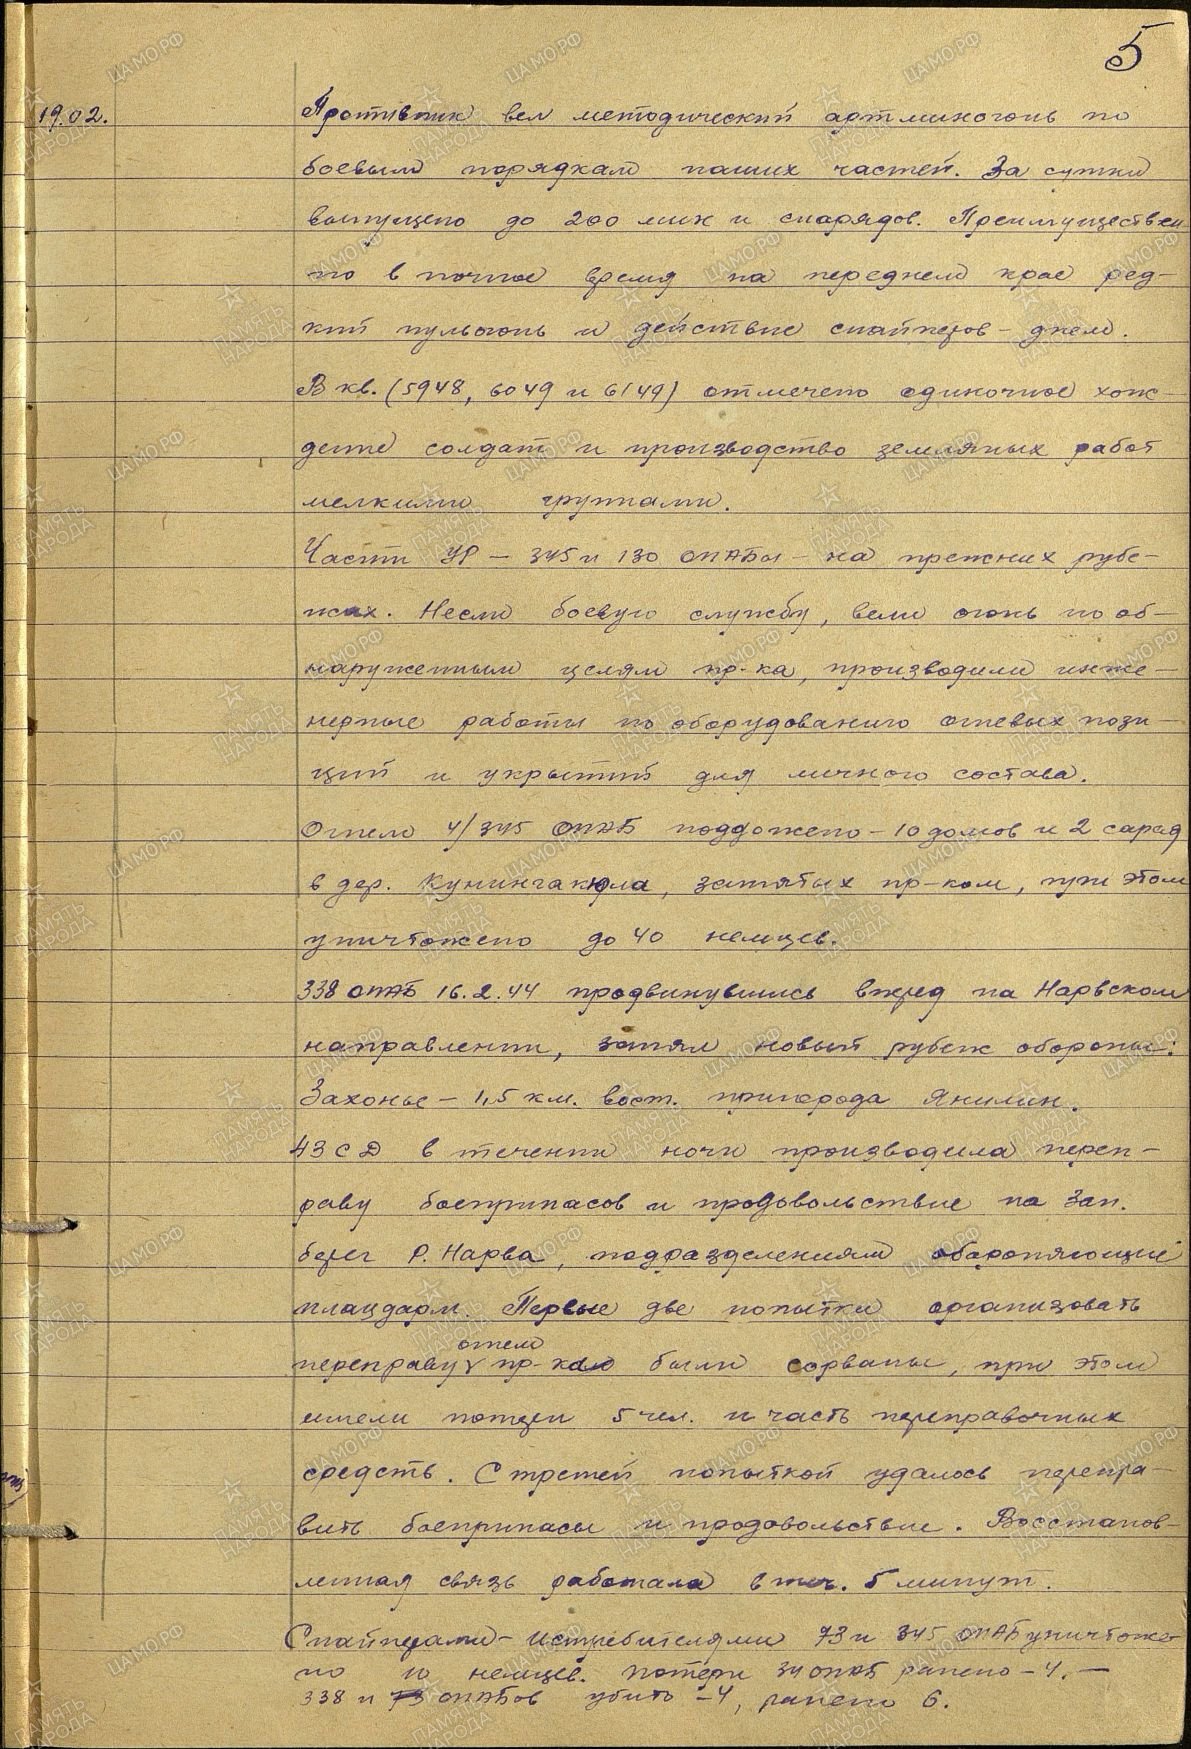 5
19.02. Противник вел методический артминогонь по
боевым порядкам наших частей. За сутки
выпущено до 200 мин и снарядов. Преимуществен-
но в ночное время на переднем крае ред-
кий пульогонь и действие снайперов - днем.
В кв. (5948, 6049 и 6149) отмечено одиночное хож-
дение солдат и производство земляных работ
мелкими группами.
Части УР – 345 и 130 ОПАБы – на прежних рубе-
жах. Несли боевую службу, вели огонь по об-
наруженным целям пр-ка, производили инже-
нерные работы по оборудованию огневых пози-
ций и укрытий для личного состава.
Огнем 4/345 ОПАБ подожжено – 10 домов и 2 сарая
в дер. Кунингакюла, занятых пр-ком, при этом
уничтожено до 40 немцев.
338 ОПАБ 16.2.44 продвинувшись вперед на Нарвском
направлении, занял новый рубеж обороны:
Захонье – 1,5 км. вост. пригорода Янилин.
43 СД в течении ночи производила переп-
раву боеприпасов и продовольствие на зап.
берег р. Нарва, подразделениям обороняющие
плацдарм. Первые две попытки организовать
переправу огнем пр-ка были сорваны, при этом
имели потери 5 чел. и часть переправочных
средств. С третей попыткой удалось перепра-
вить боеприпасы и продовольствие. Восстанов-
ленная связь работала в теч. 5 минут.
Снайперами-истребителями 73 и 345 ОПАБ уничтоже-
но 10 немцев. Потери 34 ОПАБ ранено – 4. –
338 и 73 ОПАБов убито – 4, ранено 6.